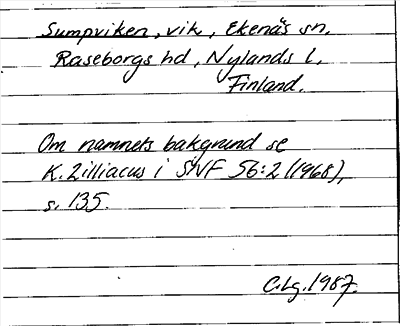 Sumpviken, vik, Ekenäs sn,
Raseborgs hd, Nylands l,
Finland.
Om namnets bakgrund se
K. Zilliacus i SNF 56:2 (1968),
s. 135.
C. Lg. 1987.